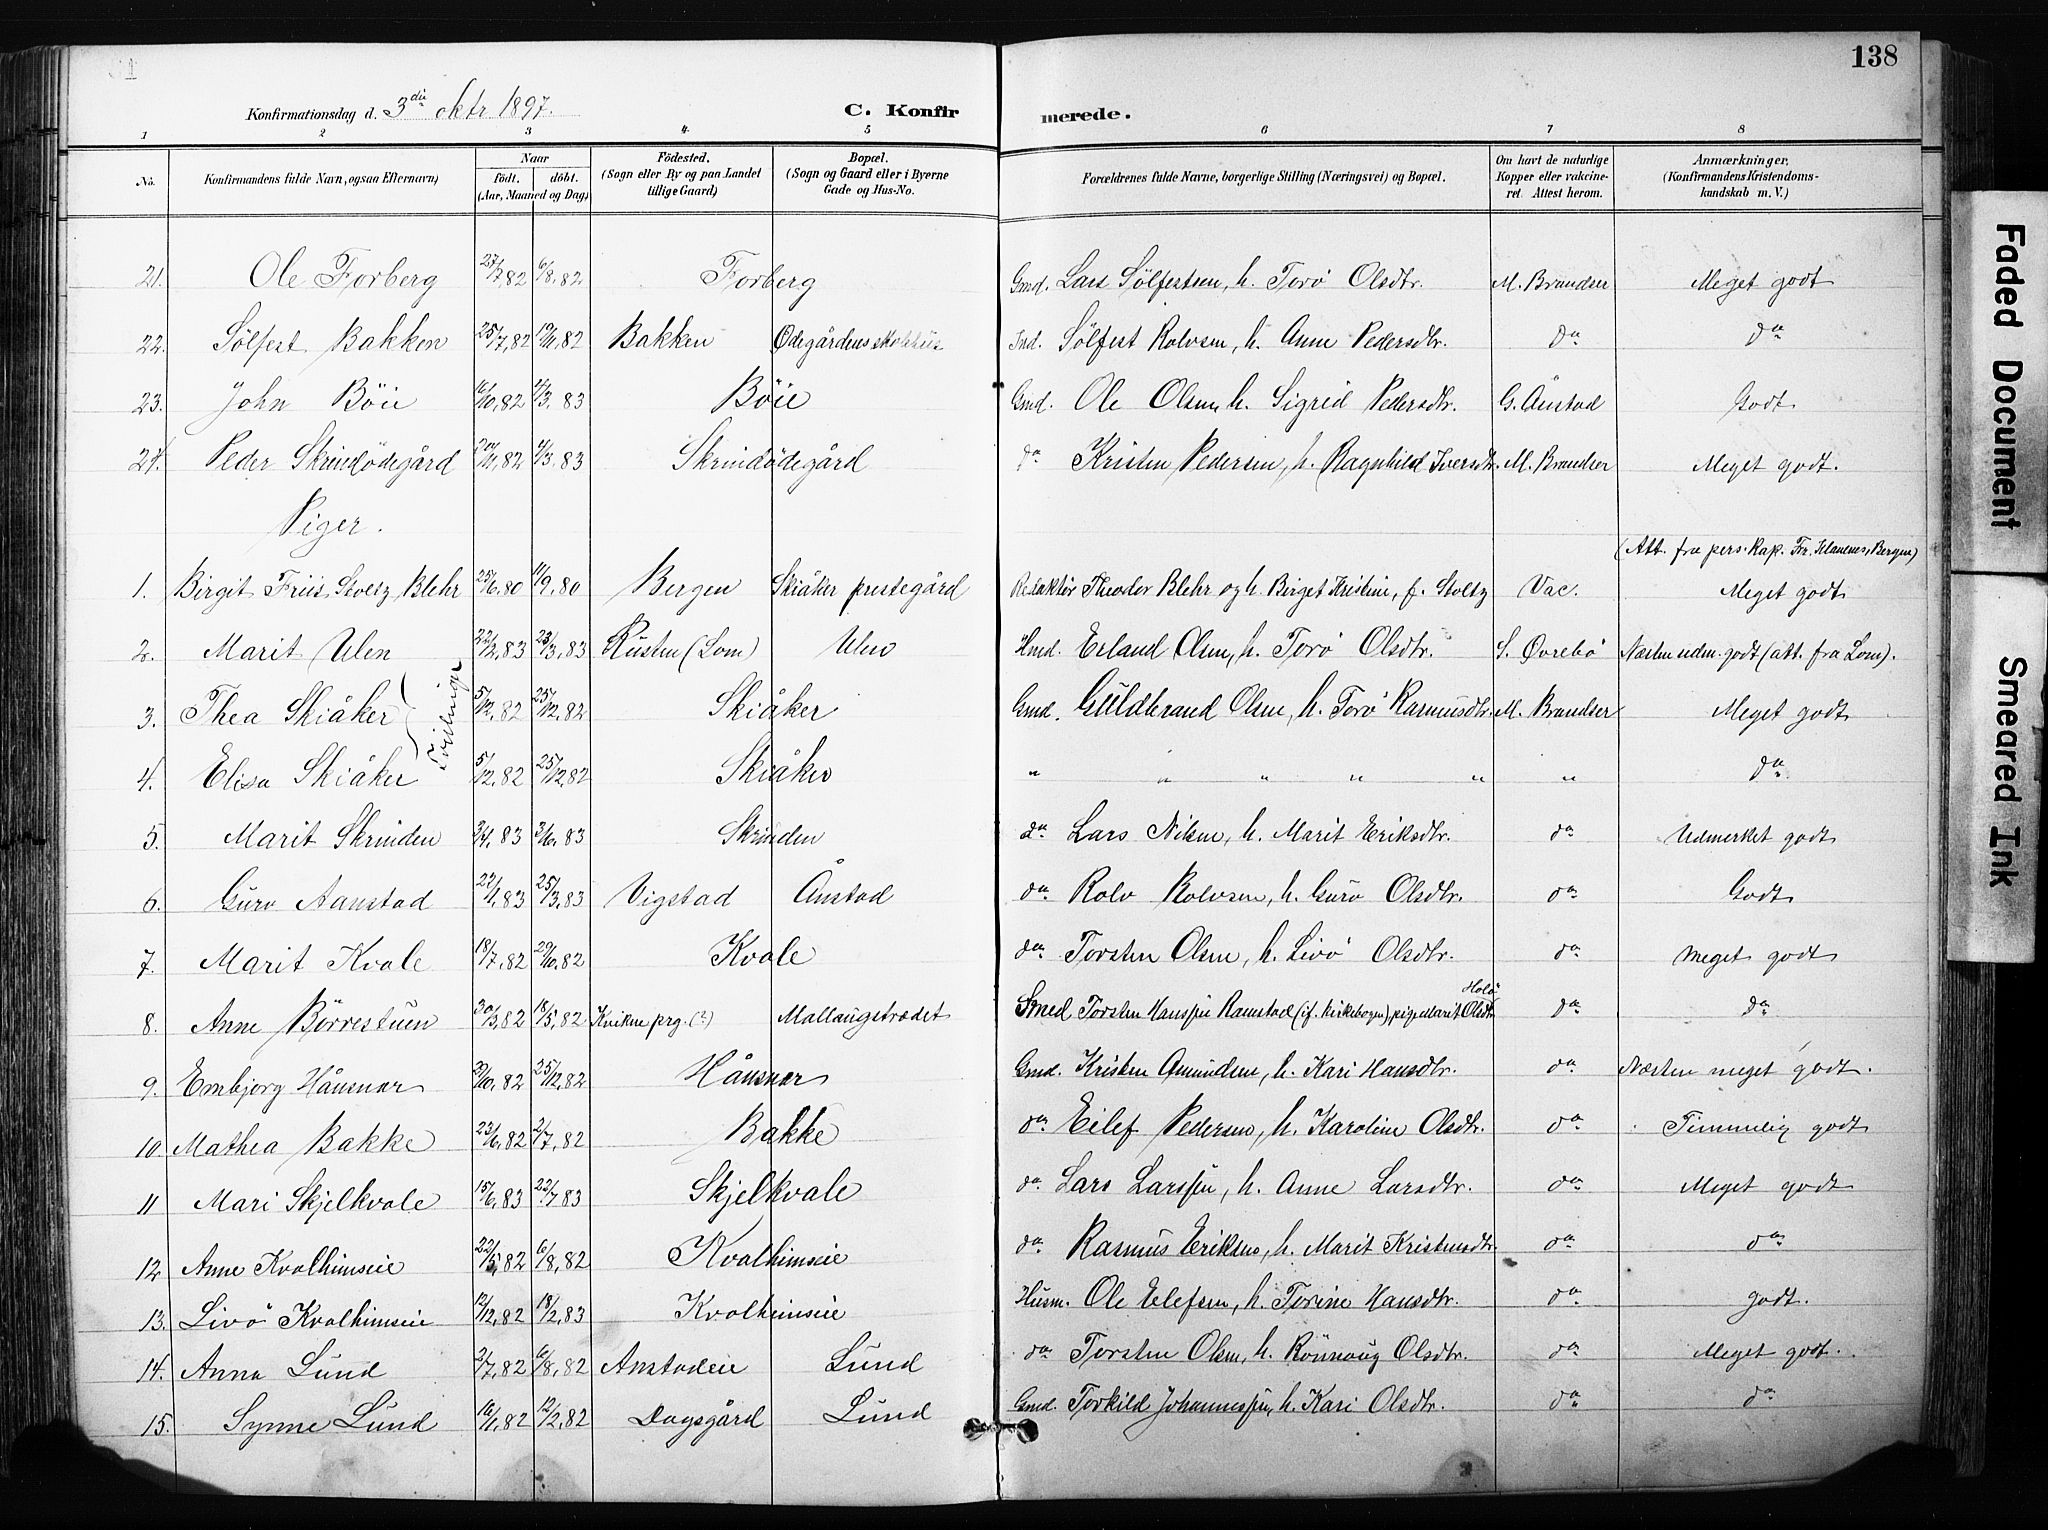 138
Konfirmationsdag d. 3die oktr 1897. C. Konfirmerede.
1 2 3 4 5 6 7 8
No. Konfirmandens fulde Navn, ogsaa Efternavn) Naar födt. döbt. (Aar, Maaned og Dag) Födested. (Sogn eller By og paa Landet tillige Gaard) Bopæl. (Sogn og Gaard eller i Byerne Gade og Hus-No. Forældrenes fulde Navne, borgerlige Stilling (Næringsvei) og Bopæl. Om havt de naturlige Kopper eller vaccineret. Attest herom. Anmærkninger. (Konfirmandens Kristendomskundskab m. V.)
21. Ole Forberg 27/7,82 6/8,82 Forberg Gmd. Lars Sölfestsen, h. Torö Olsdtr. M. Brandser Meget godt
22. Sölfest Bakken 25/7,82 19/11,82 Bakken Ødegårdens skolehus Ind. Sölfest Rolvsen, h. Anne Pedersdtr. do do
23. John Böie 16/10,82 4/3.83 Böie Gmd. Ole Olsen, h. Sigrid Pedersdtr. G. Ånstad Godt
24. Peder Skrindödegård 20/11,82 4/3.83 Skrindödegård do Kristen Pedersen, h. Ragnhild Iversdtr. M. Brandser Meget godt.
Piger.
(Att. fra pers. Kap. Fr. Klaveness, Bergen)
1. Birgit Friis Stoltz Blehr 25/6,80 11/9,80 Bergen Skiåker prestegård Redaktör Theodor Blehr og h. Birget Kristine, f. Stoltz Vac. Meget godt
2. Marit Ulen 22/2,83 23/3,83 Rusten (Lom) Ulen Hmd. Erland Olsen, h. Torö Olsdtr. S. Øvrebö Næsten udm. godt (att. fra Lom).
3. Thea Skiåker Tvillinger 5/12,82 25/12,82 Skiåker Gmd. Guldbrand Olsen, h. Torö Rasmusdtr. M. Brandser Meget godt
4. Elisa Skiåker 5/12,82 25/12,82 Skiåker " " " " " " do
5. Marit Skrinden 3/4,83 3/6,83 Skrinden do Lars Nilsen, h. Marit Eriksdtr. do Udmerket godt
6. Guro Aanstad 22/1,83 25/3,83 Vigstad Ånstad do Rolv Rolvsen, h. Guro Olsdtr. do Godt
7. Marit Kvale 18/7,82 29/10,82 Kvale do Torsten Olsen, h. Livö Olsdtr. do Meget godt
8. Anne Börrestuen 30/3,82 18/5,82 Kvikne prg. (?) Mallaugstrædet Smed Torsten Hanssen Ramstad (if. kirkebogen), pige Marit Olsdtr. do do
9. Embjorg Hånsnar 29/10,82 25/12,82 Hånsnar Gmd. Kristen Amundsen, h. Kari Hansdtr. do Næsten meget godt.
10. Mathea Bakke 23/6,82 2/7,82 Bakke do Eilef Pedersen, h. Karoline Olsdtr. do Timmelig godt
11 Mari Skjelkvale 15/6,83 22/7,83 Skjelkvale do Lars Larssen, h. Anne Larsdtr. do Meget godt
12 Anne Kvalhimseie 22/5,82 6/8,82 Kvalhimseie do Rasmus Eriksen, h. Marit Kristensdtr. do do
13. Livö Kvalhimseie 12/12,82 18/2,83 Kvalheimseie Husm. Ole Eilefsen, h. Torine Hansdtr. do godt.
14. Anna Lund 2/7,82 6/8,82 Anstadeie Lund do Torsten Olsen, h. Rönnaug Olsdtr. do Meget godt.
15. Synne Lund 16/1,82 12/2,82 Dagsgård Lund Gmd. Torkild Johannessen, h. Kari Olsdtr. do do
Faded Document
Smeared Ink